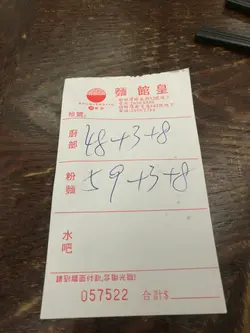 麵館皇
枱號:
廚部 48+3+8
粉麵 59+3+8
水吧
請到櫃面付款,多謝光臨!
057522 合計$